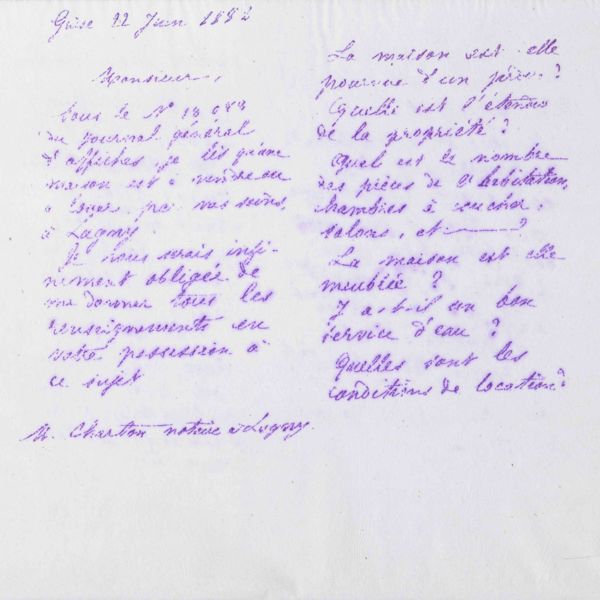 Guise 22 Juin 1882
Monsieur,
Sous le N° 13 083
du journal général
d'affiches, je lis qu'une
maison est à vendre ou
à louer, par vos soins,
à Lagny.
Je vous serais infi-
niment obligée de
me donner tous les
renseignements en
votre possession à
ce sujet
M. Charton notaire à Lagny.
La maison est-elle
pourvue d'un jardin ?
Quelle est l'étendue
de la propriété ?
Quel est le nombre
des pièces de l'habitation,
chambres à coucher,
salons, etc ?
La maison est-elle
meublée ?
Y a-t-il un bon
service d'eau ?
Quelles sont les
conditions de location ?